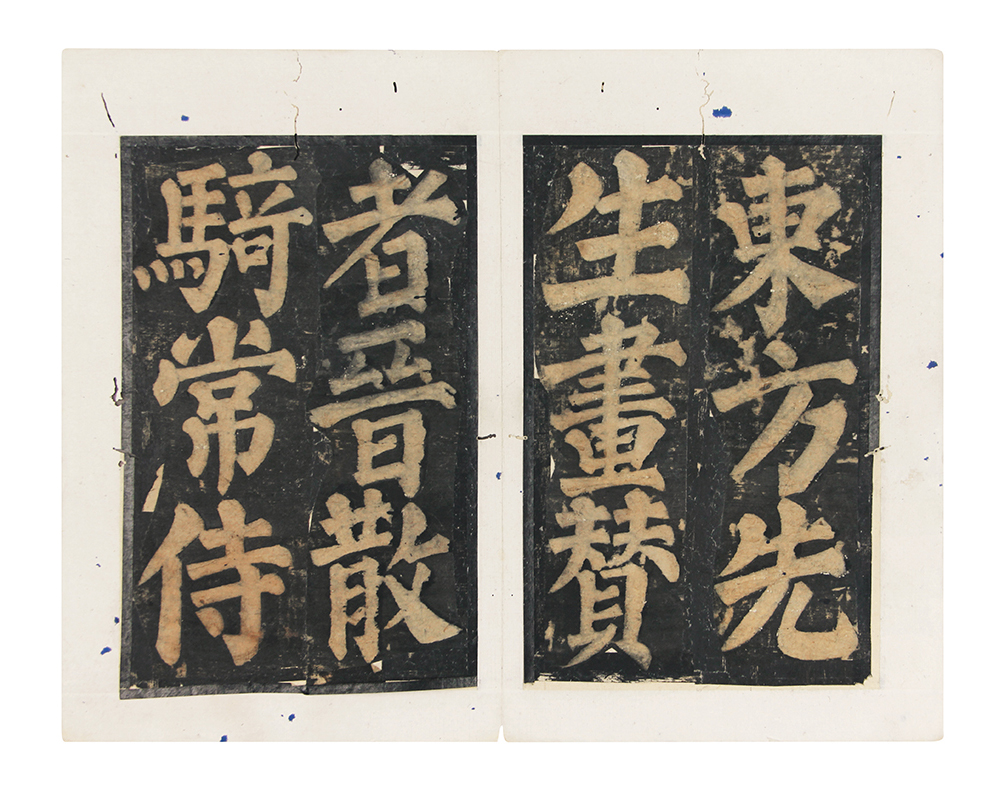 東方先
生畫賛
者晉散
騎常侍